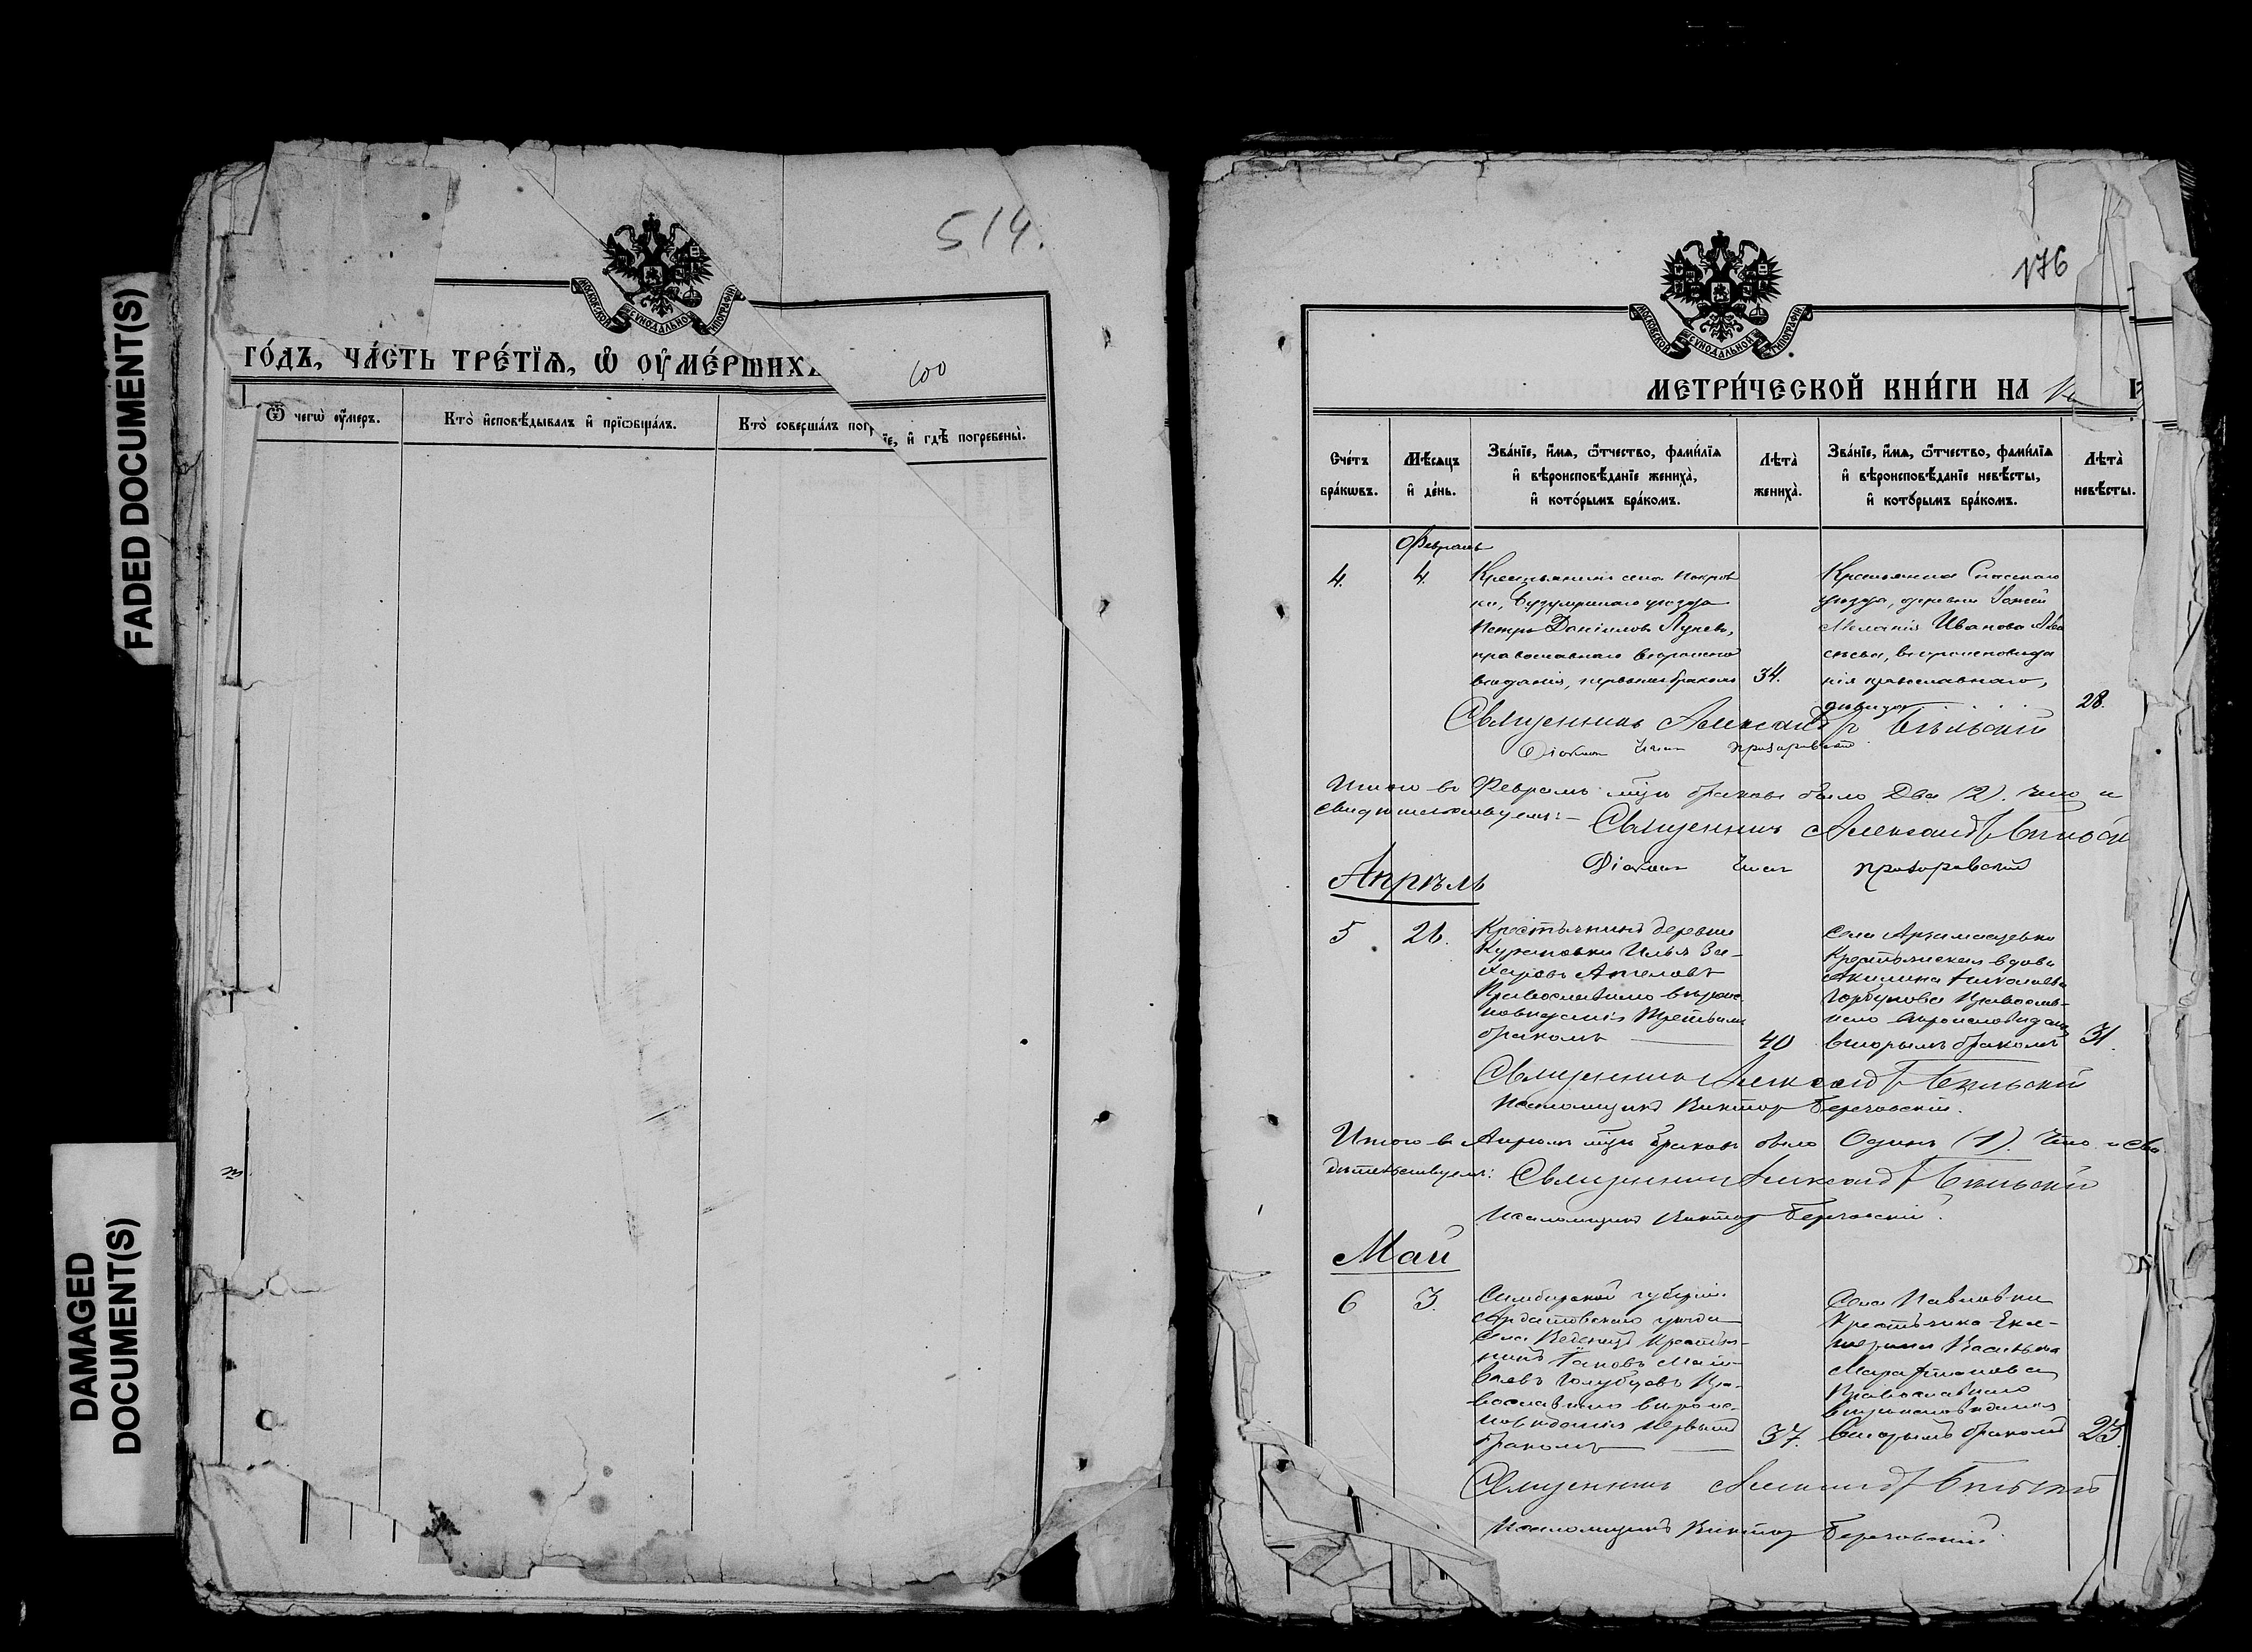 FADED DOCUMENT(S)
DAMAGED
DOCUMENT(S)
514.
МОСКОВСКОЙ СѴНОДАЛЬНОЙ ТИПОГРАФІИ
ГО́ДЪ, ЧА́СТЬ ТРЕ́ТЇѦ, Ѡ҆ ОУ҆МЕ́РШИХЪ
100
Ѿ чегѡ̀ оу҆́меръ.
Кто̀ и҆сповѣ́дывалъ и҆ прїѡбща́лъ.
Кто̀ соверша́лъ погр
їе, и҆ гдѣ̀ погребены̀.
176
МОСКОВСКОЙ СѴНОДАЛЬНОЙ ТИПОГРАФІИ
МЕТРИ́ЧЕСКОЙ КНИ́ГИ НА
Сче́тъ бра́кѡвъ.
Мѣ́сяцъ и҆ де́нь.
Зва́нїе, и҆́мѧ, ѻ҆́тчество, фами́лїѧ
и҆ вѣроисповѣ́данїе жениха̀,
и҆ кото́рымъ бра́комъ.
Лѣта̀ жениха̀.
Зва́нїе, и҆́мѧ, ѻ҆́тчество, фами́лїѧ
и҆ вѣроисповѣ́данїе невѣ́сты,
и҆ кото́рымъ бра́комъ.
Лѣта̀ невѣ́сты.
Февраль
4. 4.
Крестьянинъ села Покров
ки, Бузулукскаго уѣзда
Петръ Даніиловъ Луневъ,
православнаго вѣроиспо
вѣданія, первымъ бракомъ
34.
Крестьянка Спасскаго
уѣзда, деревни
Меланія Иванова
вѣроисповѣда
нія православнаго,
дѣвица
28.
Священникъ Александръ Бѣльскій
Діаконъ
Итого въ Февралѣ м҃цѣ браковъ было Два (2). Что и
свидѣтельствуемъ:
Священникъ Александръ
Діаконъ
Апрѣль
5 26.
Крестьянинъ деревни
Илья За-
харовъ
Православнаго вѣроис
повѣданія Третьимъ
бракомъ
40
Села
Крестьянская вдова
Акилина Николаева
Горбунова Православ-
наго вѣроисповѣданія
вторымъ бракомъ
31.
Священникъ Александръ Бѣльскій
Псаломщикъ Викторъ
Итого въ Апрѣлѣ м҃цѣ браковъ было Одинъ (1). Что и сви
дѣтельствуемъ: Священникъ Александръ Бѣльскій
Псаломщикъ Викторъ
Май
6 3.
Симбирской губерніи
Ардатовскаго уѣзда
Села Крестья-
нинъ Іаковъ Мат-
Голубцовъ Пра-
вославнаго вѣроис-
повѣданія первымъ
бракомъ
37.
Села Павловки
Крестьянка Ека-
терина Васильева
Православнаго
вѣроисповѣданія
вторымъ бракомъ
23.
Священникъ Александръ Бѣльскій
Псаломщикъ Викторъ